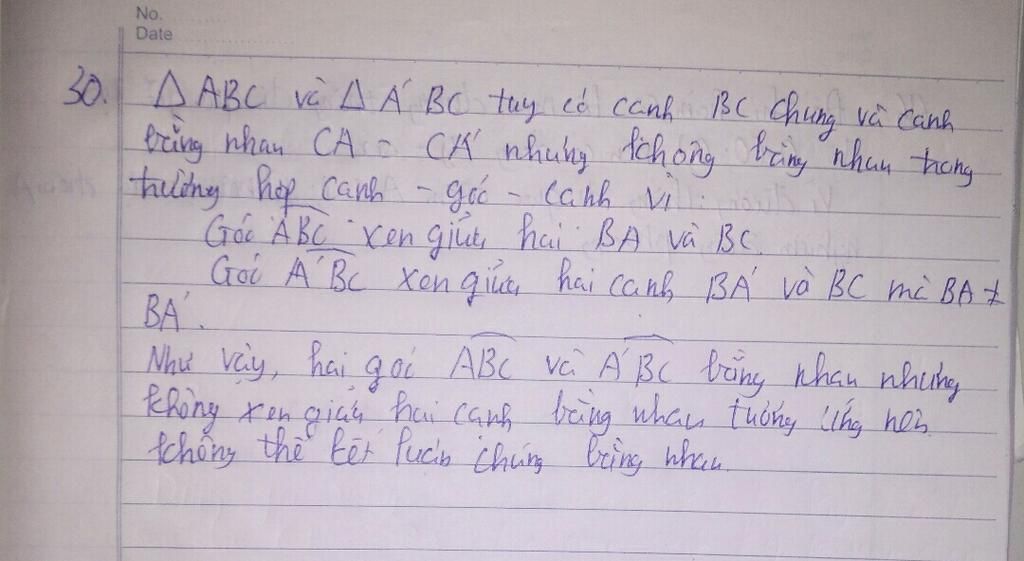 No.
Date
30. Δ ABC và Δ A'BC tuy có canh BC chung và canh
bằng nhau CA = CA' nhưng không bằng nhau trong
trường hợp canh - góc - canh vì
Góc ABC xen giữa hai BA và BC
Góc A'BC xen giữa hai canh BA' và BC mà BA ≠
BA'.
Như vậy, hai góc ABC và A'BC bằng nhau nhưng
không xen giữa hai canh bằng nhau tương ứng nên
không thể kết luận chúng bằng nhau.